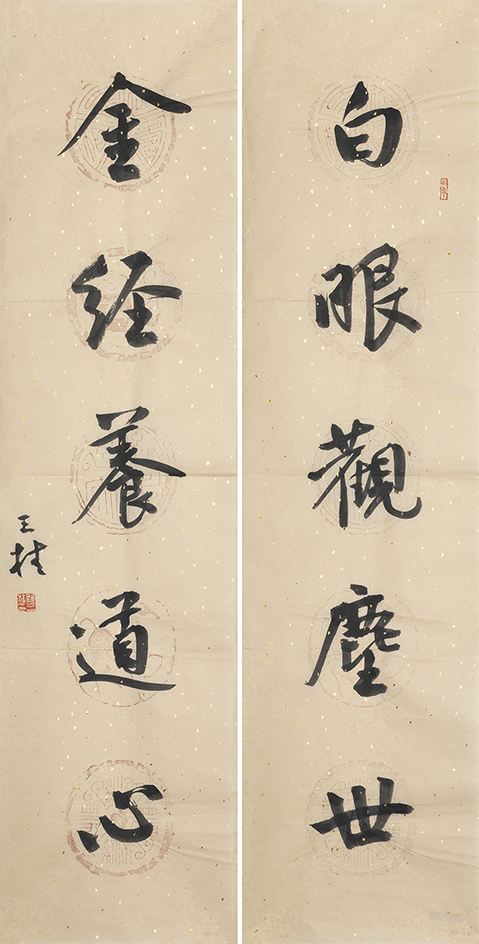 白眼觀塵世
金經養道心
王桂